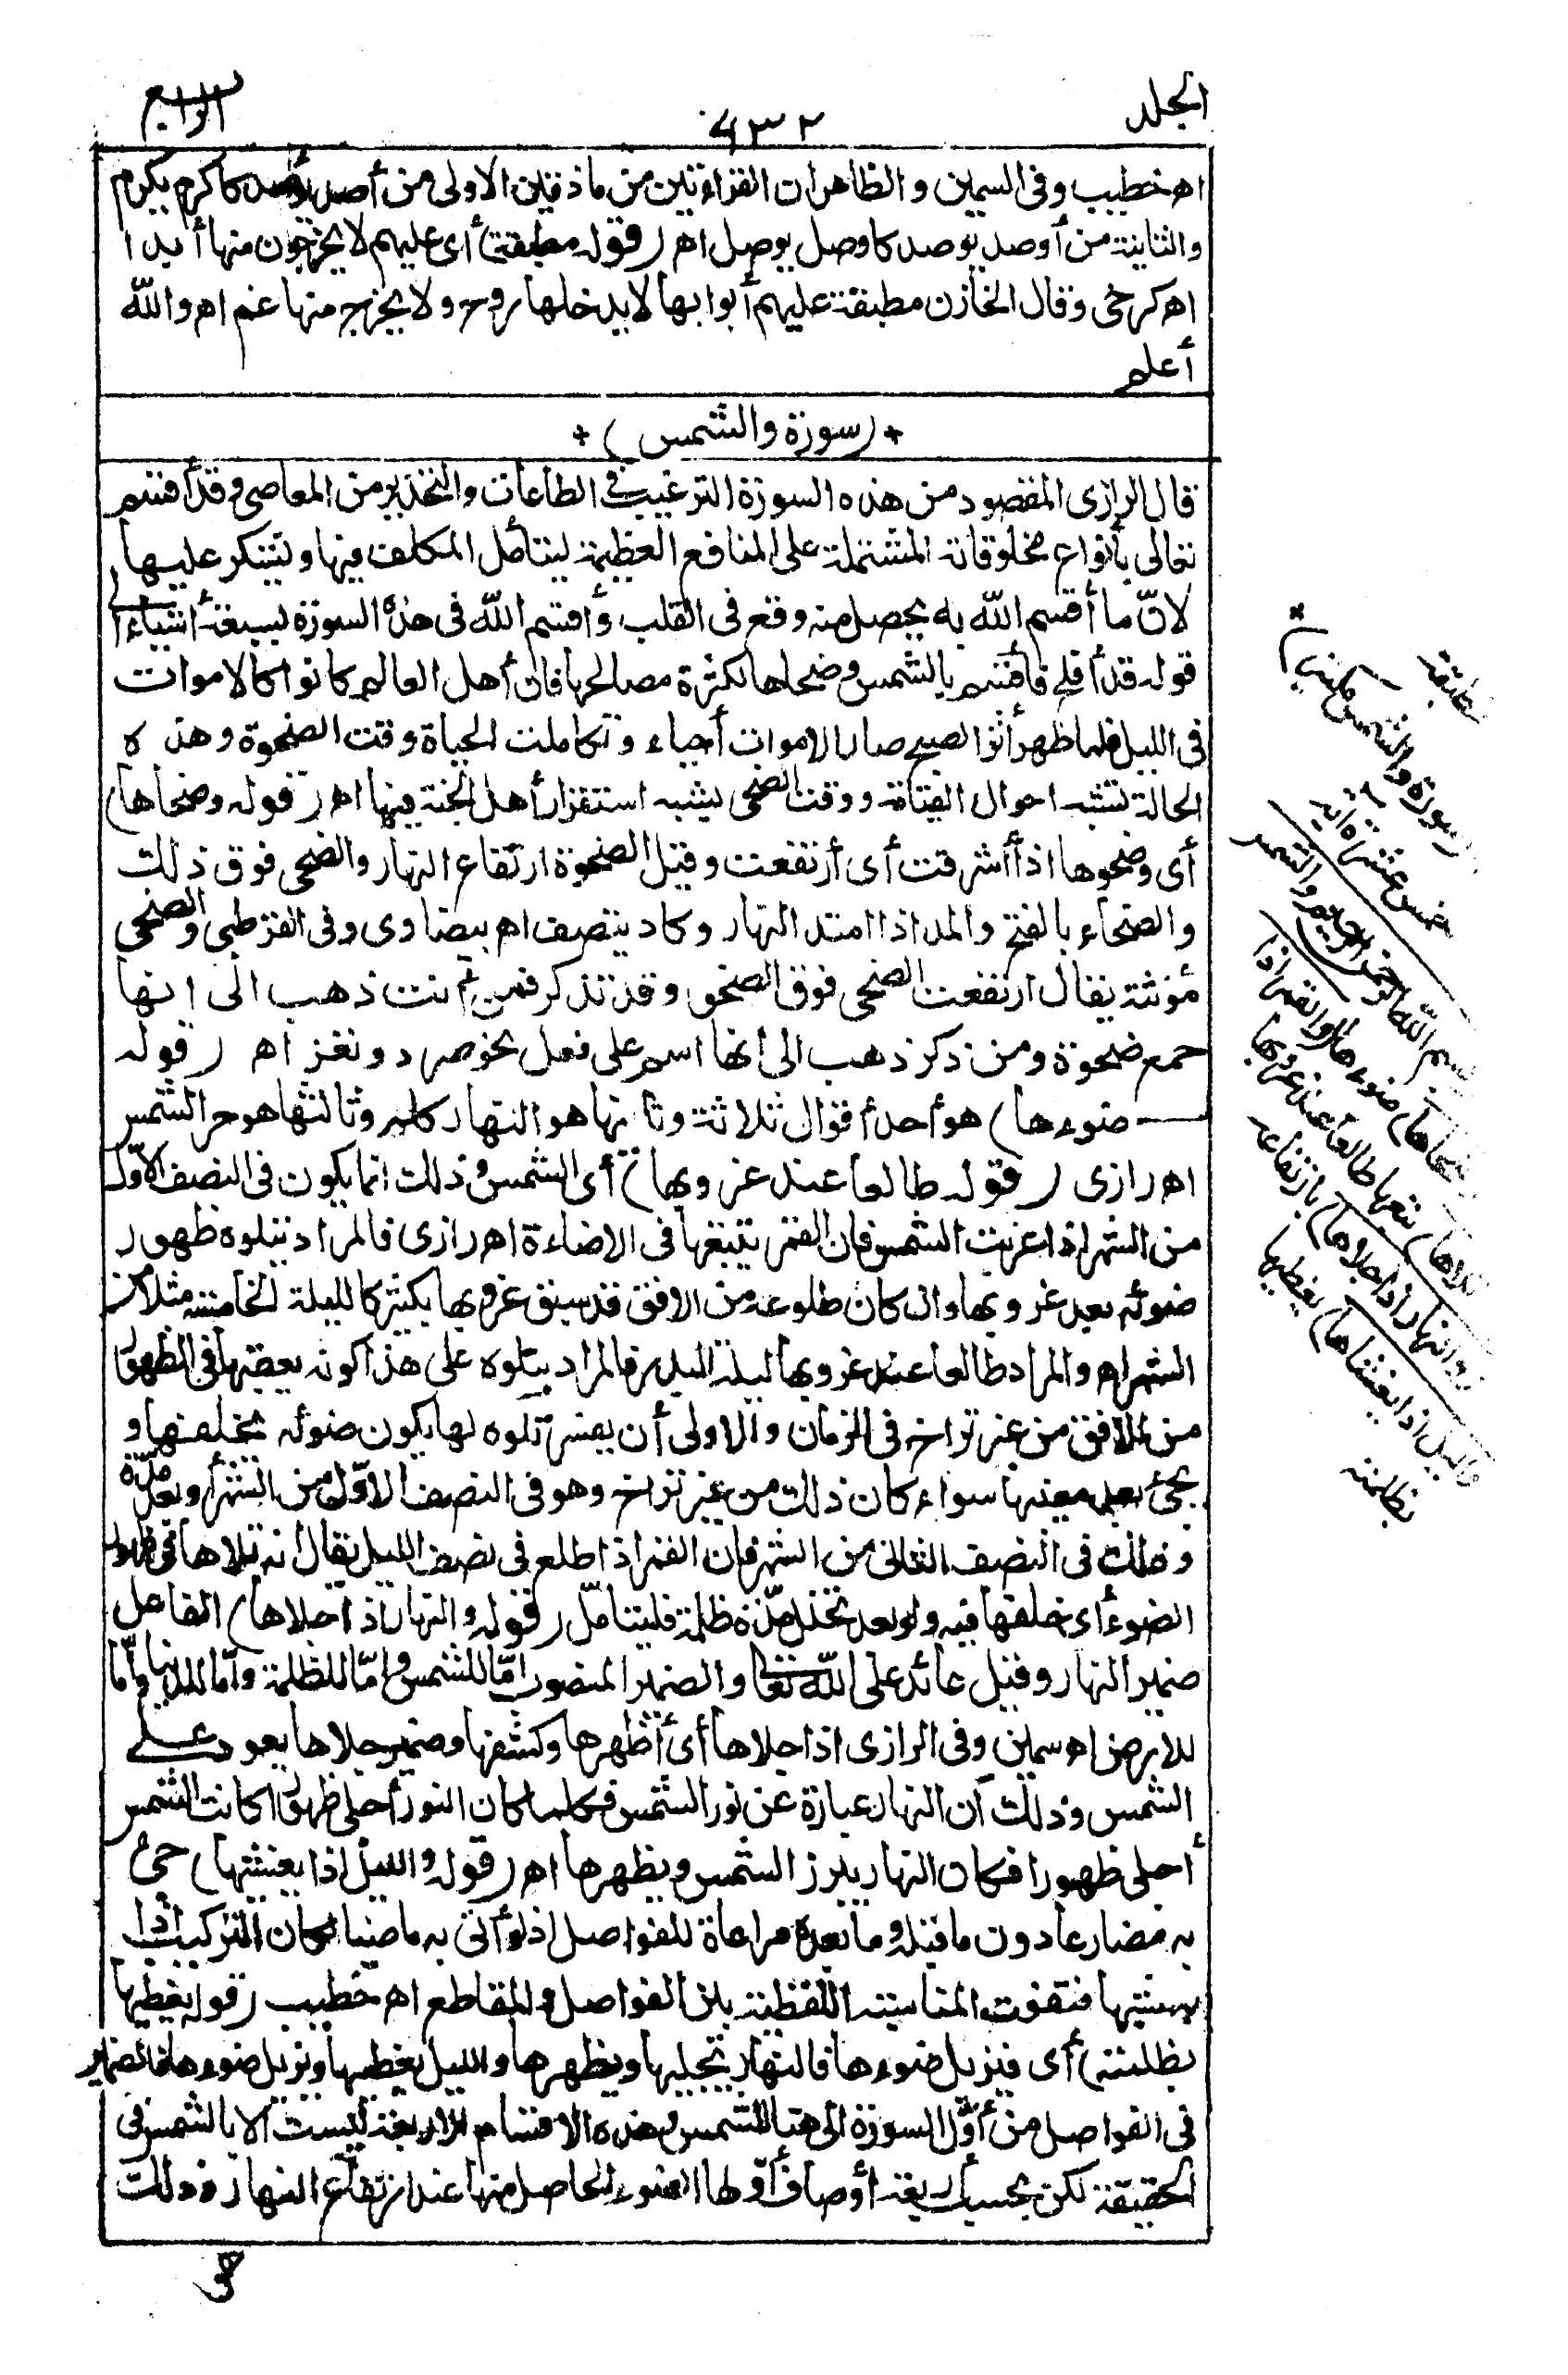 الجلد
٤٣٢
الرابع
اه خطيب وفى السمين والظاهر ان القراءتين من مادتين الاولى من أصد يؤصد كاكرم يكرم
والثانية من أوصد يوصد كاوصل يوصل اه (قوله مطبقة) أى عليهم لا يخرجون منها أبدا
اه كرخى وقال الخازن مطبقة عليهم أبوابها لا يدخلها روح ولا يخرج منها غم اه والله
أعلم
* (سورة والشمس) *
قال الرازى المقصود من هذه السورة الترغيب فى الطاعات والتحذير من المعاصى وقد أقسم
تعالى بأنواع مخلوقاته المشتملة على المنافع العظيمة ليتأمل المكلف فيها ويشكر عليها
لانّ ما أقسم الله به يحصل منه وقع فى القلب وأقسم الله فى هذه السورة بسبعة أشياء الى
قوله قد أفلح فأقسم بالشمس وضحاها لكثرة مصالحها فان أهل العالم كانوا كالاموات
فى الليل فلما ظهر أثر الصبح صار الاموات أحياء وتكاملت الحياة وقت الضحوة وهذه
الحالة تشبه احوال القيامة ووقت الضحى يشبه استقرار أهل الجنة فيها اه (قوله وضحاها)
أى وضحوها اذا أشرقت أى أرتفعت وقيل الضحوة ارتفاع النهار والضحى فوق ذلك
والضحاء بالفتح والمد اذا امتد النهار وكاد ينتصف اه بيضاوى وفى القرطبى والضحى
مؤنثة يقال ارتفعت الضحى فوق الضحو وقد تذكر فمن أنث ذهب الى انها
جمع ضحوة ومن ذكر ذهب الى أنها اسم على فعل نحو صرد ونغز اه (قوله
ضوءها) هو أحد أقوال ثلاثة وثانيها هو النهار كله وثالثها هو حر الشمس
اه رازى (قوله طالعا عند غروبها) أى الشمس وذلك انما يكون فى النصف الاوّل
من الشهر اذا غربت الشمس فان القمر يتبعها فى الاضاءة اه رازى فالمراد بتلوه ظهور
ضوئه بعد غروبها وان كان طلوعه من الافق قد سبق غروبها بكثير كالليلة الخامسة مثلا من
الشهر اه والمراد طالعا عند غروبها ليلة البدر فالمراد بتلوه على هذا كونه يعقبها فى الظهور
من الافق من غير تراخ فى الزمان والاولى أن يفسر تلوه لها بكون ضوئه يخلفها و
يجئ بعد مغيبها سواء كان ذلك من غير تراخ وهو فى النصف الاوّل من الشهر أو بعد مدّة
وذلك فى النصف الثانى من الشهر فان القمر اذا طلع فى نصف الليل يقال انه تلاها فى ظهور
الضوء أى خلفها فيه ولو بعد تخلل مدّة ظلمة فليتأمّل (قوله والنهار اذا جلاها) الفاعل
ضمير النهار وقيل عائد على الله تعالى والضمير المنصوب امّا للشمس وامّا للظلمة وامّا للدنيا وامّا
للارض اه سمين وفى الرازى اذا جلاها أى أظهرها وكشفها وضمير جلاها يعود على
الشمس وذلك أن النهار عبارة عن نور الشمس فكلما كان النور أجلى ظهورا كانت الشمس
أجلى ظهورا فكان النهار يبرز الشمس ويظهرها اه (قوله والليل اذا يغشيها) جئ
به مضارعا دون ما قبله وما بعده مراعاة للفواصل اذ لو أتى به ماضيا لكان التركيب اذا
غشيها فتفوت المناسبة اللفظية بين الفواصل والمقاطع اه خطيب (قوله يغطيها
بظلمته) أى فيزيل ضوءها فالنهار يجليها ويظهرها والليل يغطيها ويزيل ضوءها فالضمير
فى الفواصل من أوّل السورة الى هنا للشمس وهذه الاقسام الاربعة ليست الا بالشمس فى
الحقيقة لكن بحسب أربعة أوصاف أوّلها الضوء الحاصل منها عند ارتفاع النهار وذلك
مطبقة
* (سورة والشمس مكية)
خمس عشرة اية
بسم الله الرحمن الرحيم والشمس
وضحاها) ضوءها (والقمر اذا
تلاها) تبعها طالعا عند غروبها
(والنهار اذا جلاها) بارتفاعه
(والليل اذا يغشاها) يغطيها
بظلمته